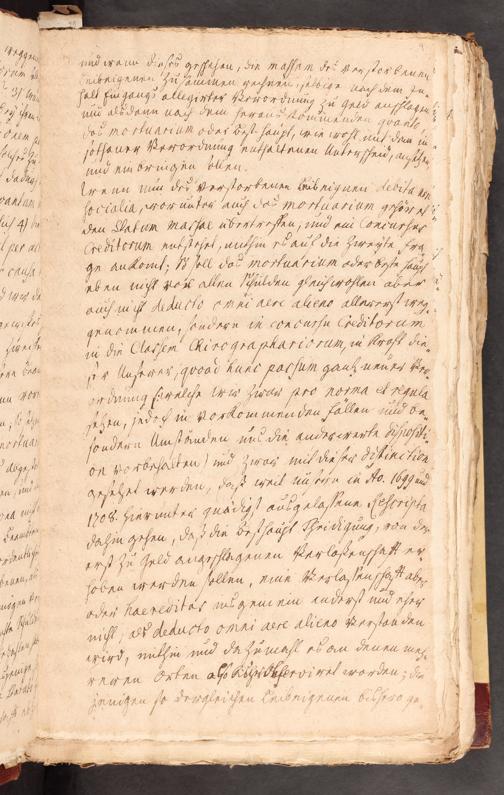 und wann dieses geschehen, die massam des verstorbenen
Leibeigenen zusammen rechnen, selbige nach dem In-
halt Eingangs allegirter Verordnung zu geld anschlagen
und alsdann nach dem heraus kommenden quanto
das mortuarium oder best haupt, wie wohl mit dem in
sothaner Verordnung enthaltenen Unterscheid, ansezen
und einbringen sollen.
Wenn nun des verstorbenen Leibeignen debita non
socialia, worunter auch das mortuarium gehöret
den Statum massae übertreffen, und ein Concursus
Creditorum entstehet, mithin es auf die zweyte Fra-
ge ankomt; So soll das mortuarium oder beste haupt
eben nicht vor allen Schulden gleichwohlen aber
auch nicht deducto omni aere alieno allererst weg-
genommen, sondern in concursu Creditorum
in die Classem Chirographariorum, in Krafft die-
ser Unserer, quoad hunc passum ganz neuer Ver-
ordnung (welche wir zwar pro norma et regula
sezen, jedoch in vorkommenden fällen und be-
sondern Umständen uns die anderwerte dispositi-
on vorbehalten) und zwar mit dieser distinction
gesezet werden, daß weil unsere in Ao. 1699 und
1708. hierunter gnädigst ausgelassene Rescripta
dahin gehen, daß die Besthaupt Theidigung, von der
erst zu Geld angeschlagenen Verlaßenschafft er-
hoben werden sollen, eine Verlassenschafft aber
oder haereditas insgemein anderst und eher
nicht, als deducto omni aere alieno verstanden
wird, mithin und da zumahl es an denen meh-
reren Orten also observiret worden; die
jenigen so dergleichen Leibeigenen bißhero ge-